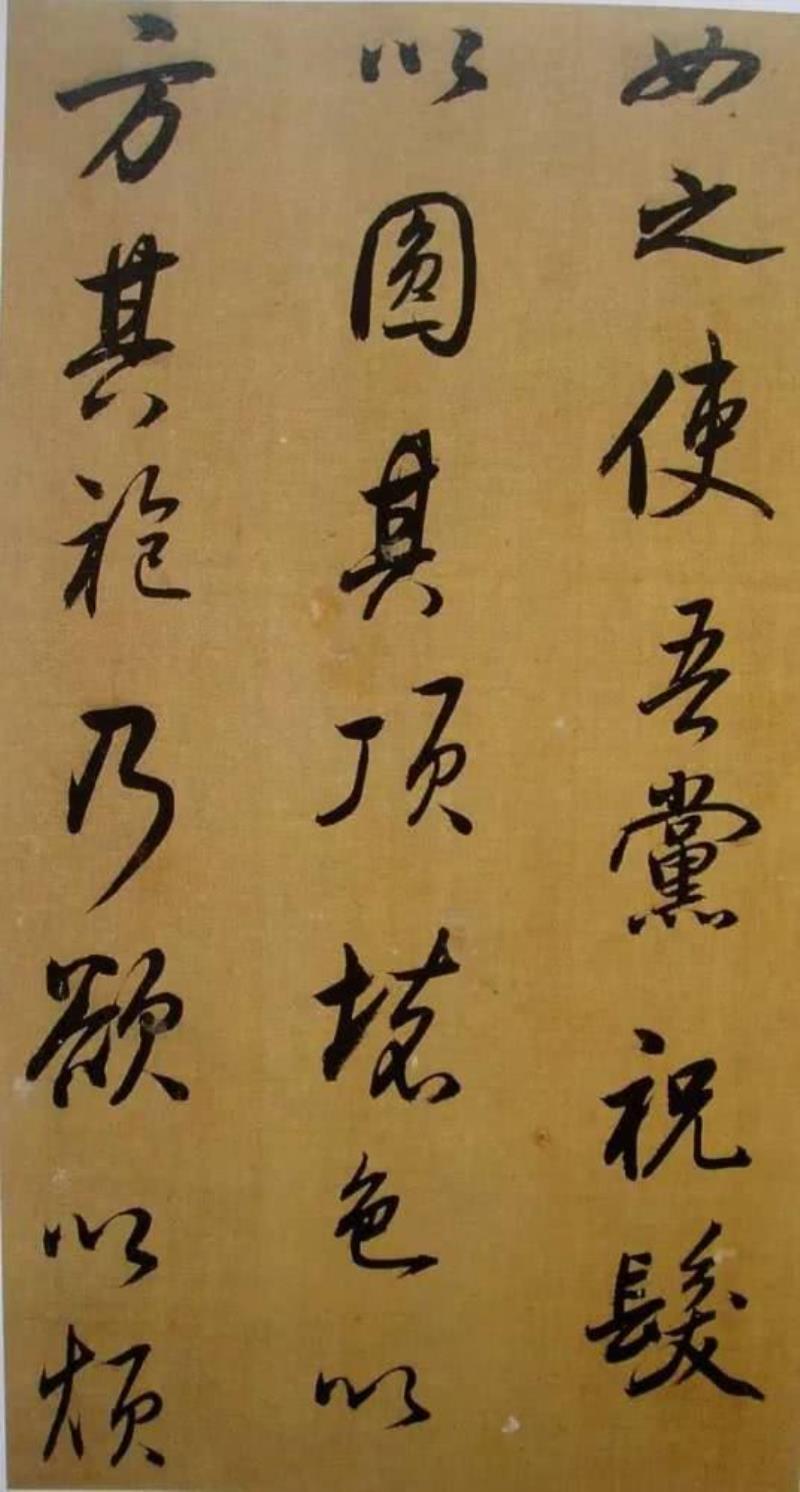 如之使吾黨祝髮
以圓其頂壞色以
方其袍乃欲以煩